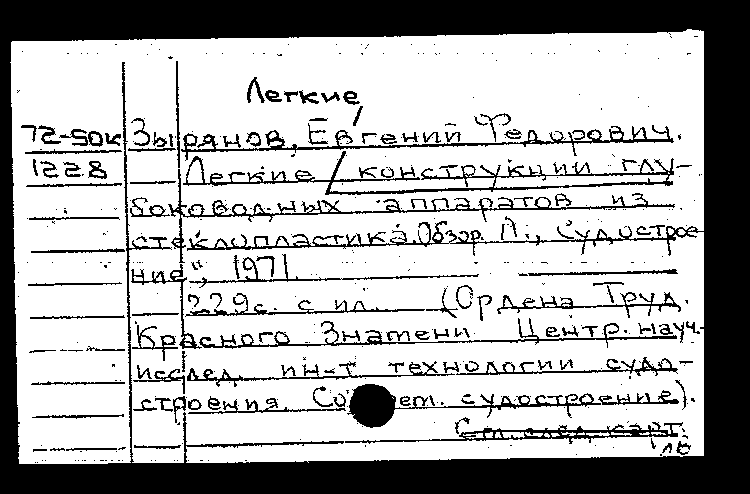 Легкие
72-50к Зырянов, Евгений Федорович.
1228 Легкие конструкции глу-
боководных аппаратов из
стеклопластика. Обзор. Л., "Судострое-
ние", 1971.
229с. с ил. (Ордена Труд.
Красного Знамени Центр. науч.-
исслед. ин-т технологии судо-
строения. Со ет. судостроение).
См. след. карт.